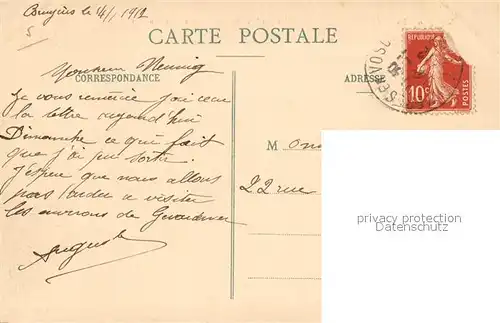 Bruyères le 14/1 1912
5
CARTE POSTALE
Monsieur
CORRESPONDANCE
ADRESSE
REPUBLIQUE FRANÇAISE
10c
POSTES
VOSGES
Je vous remercie j'ai reçu
la lettre aujourd'hui
Dimanche ce qui fait
que j'ai pu sortir.
J'espère que nous allons
pas tarder a visiter
les environs de Gerardmer
Auguste
M
22 rue
privacy protection
Datenschutz